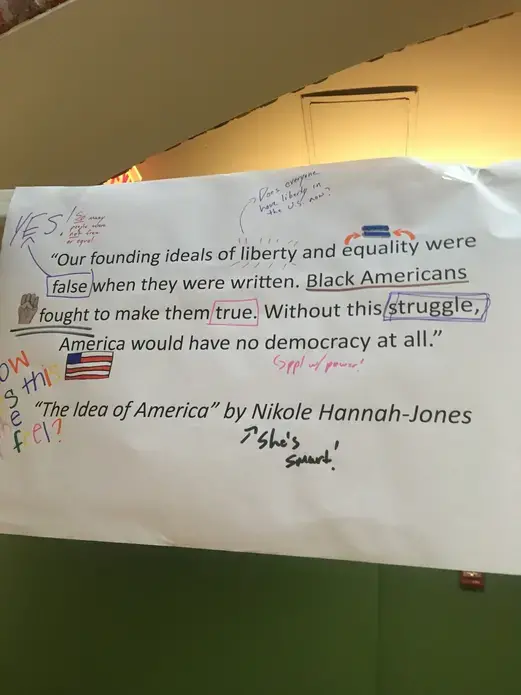 YES!
So many
people were
not free
or equal
Does everyone
have liberty in
the U.S. now?
“Our founding ideals of liberty and equality were
false when they were written. Black Americans
fought to make them true. Without this struggle,
America would have no democracy at all.”
(ppl w/ power!
“The Idea of America” by Nikole Hannah-Jones
She's
smart!
ow
s this
e
feel?